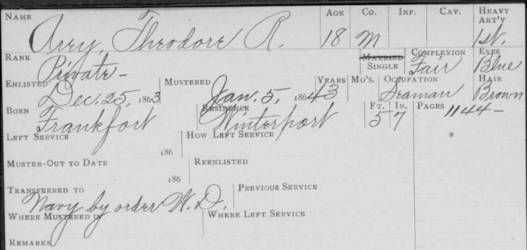 NAME AGE CO. INF. CAV. HEAVY ART'Y
Arey, Theodore R. 18 M 1st.
RANK MARRIED SINGLE COMPLEXION EYES
Private - Fair Blue
ENLISTED MUSTERED YEARS MO'S. OCCUPATION HAIR
Dec. 25, 1863 Jan. 5, 1864 3 Seaman Brown
BORN RESIDENCE FT. IN. PAGES
Frankfort Winterport 5 7 1144-
LEFT SERVICE HOW LEFT SERVICE
186
MUSTER-OUT TO DATE REENLISTED
186
TRANSFERRED TO PREVIOUS SERVICE
Navy by order W. D.
WHERE MUSTERED IN WHERE LEFT SERVICE
REMARKS